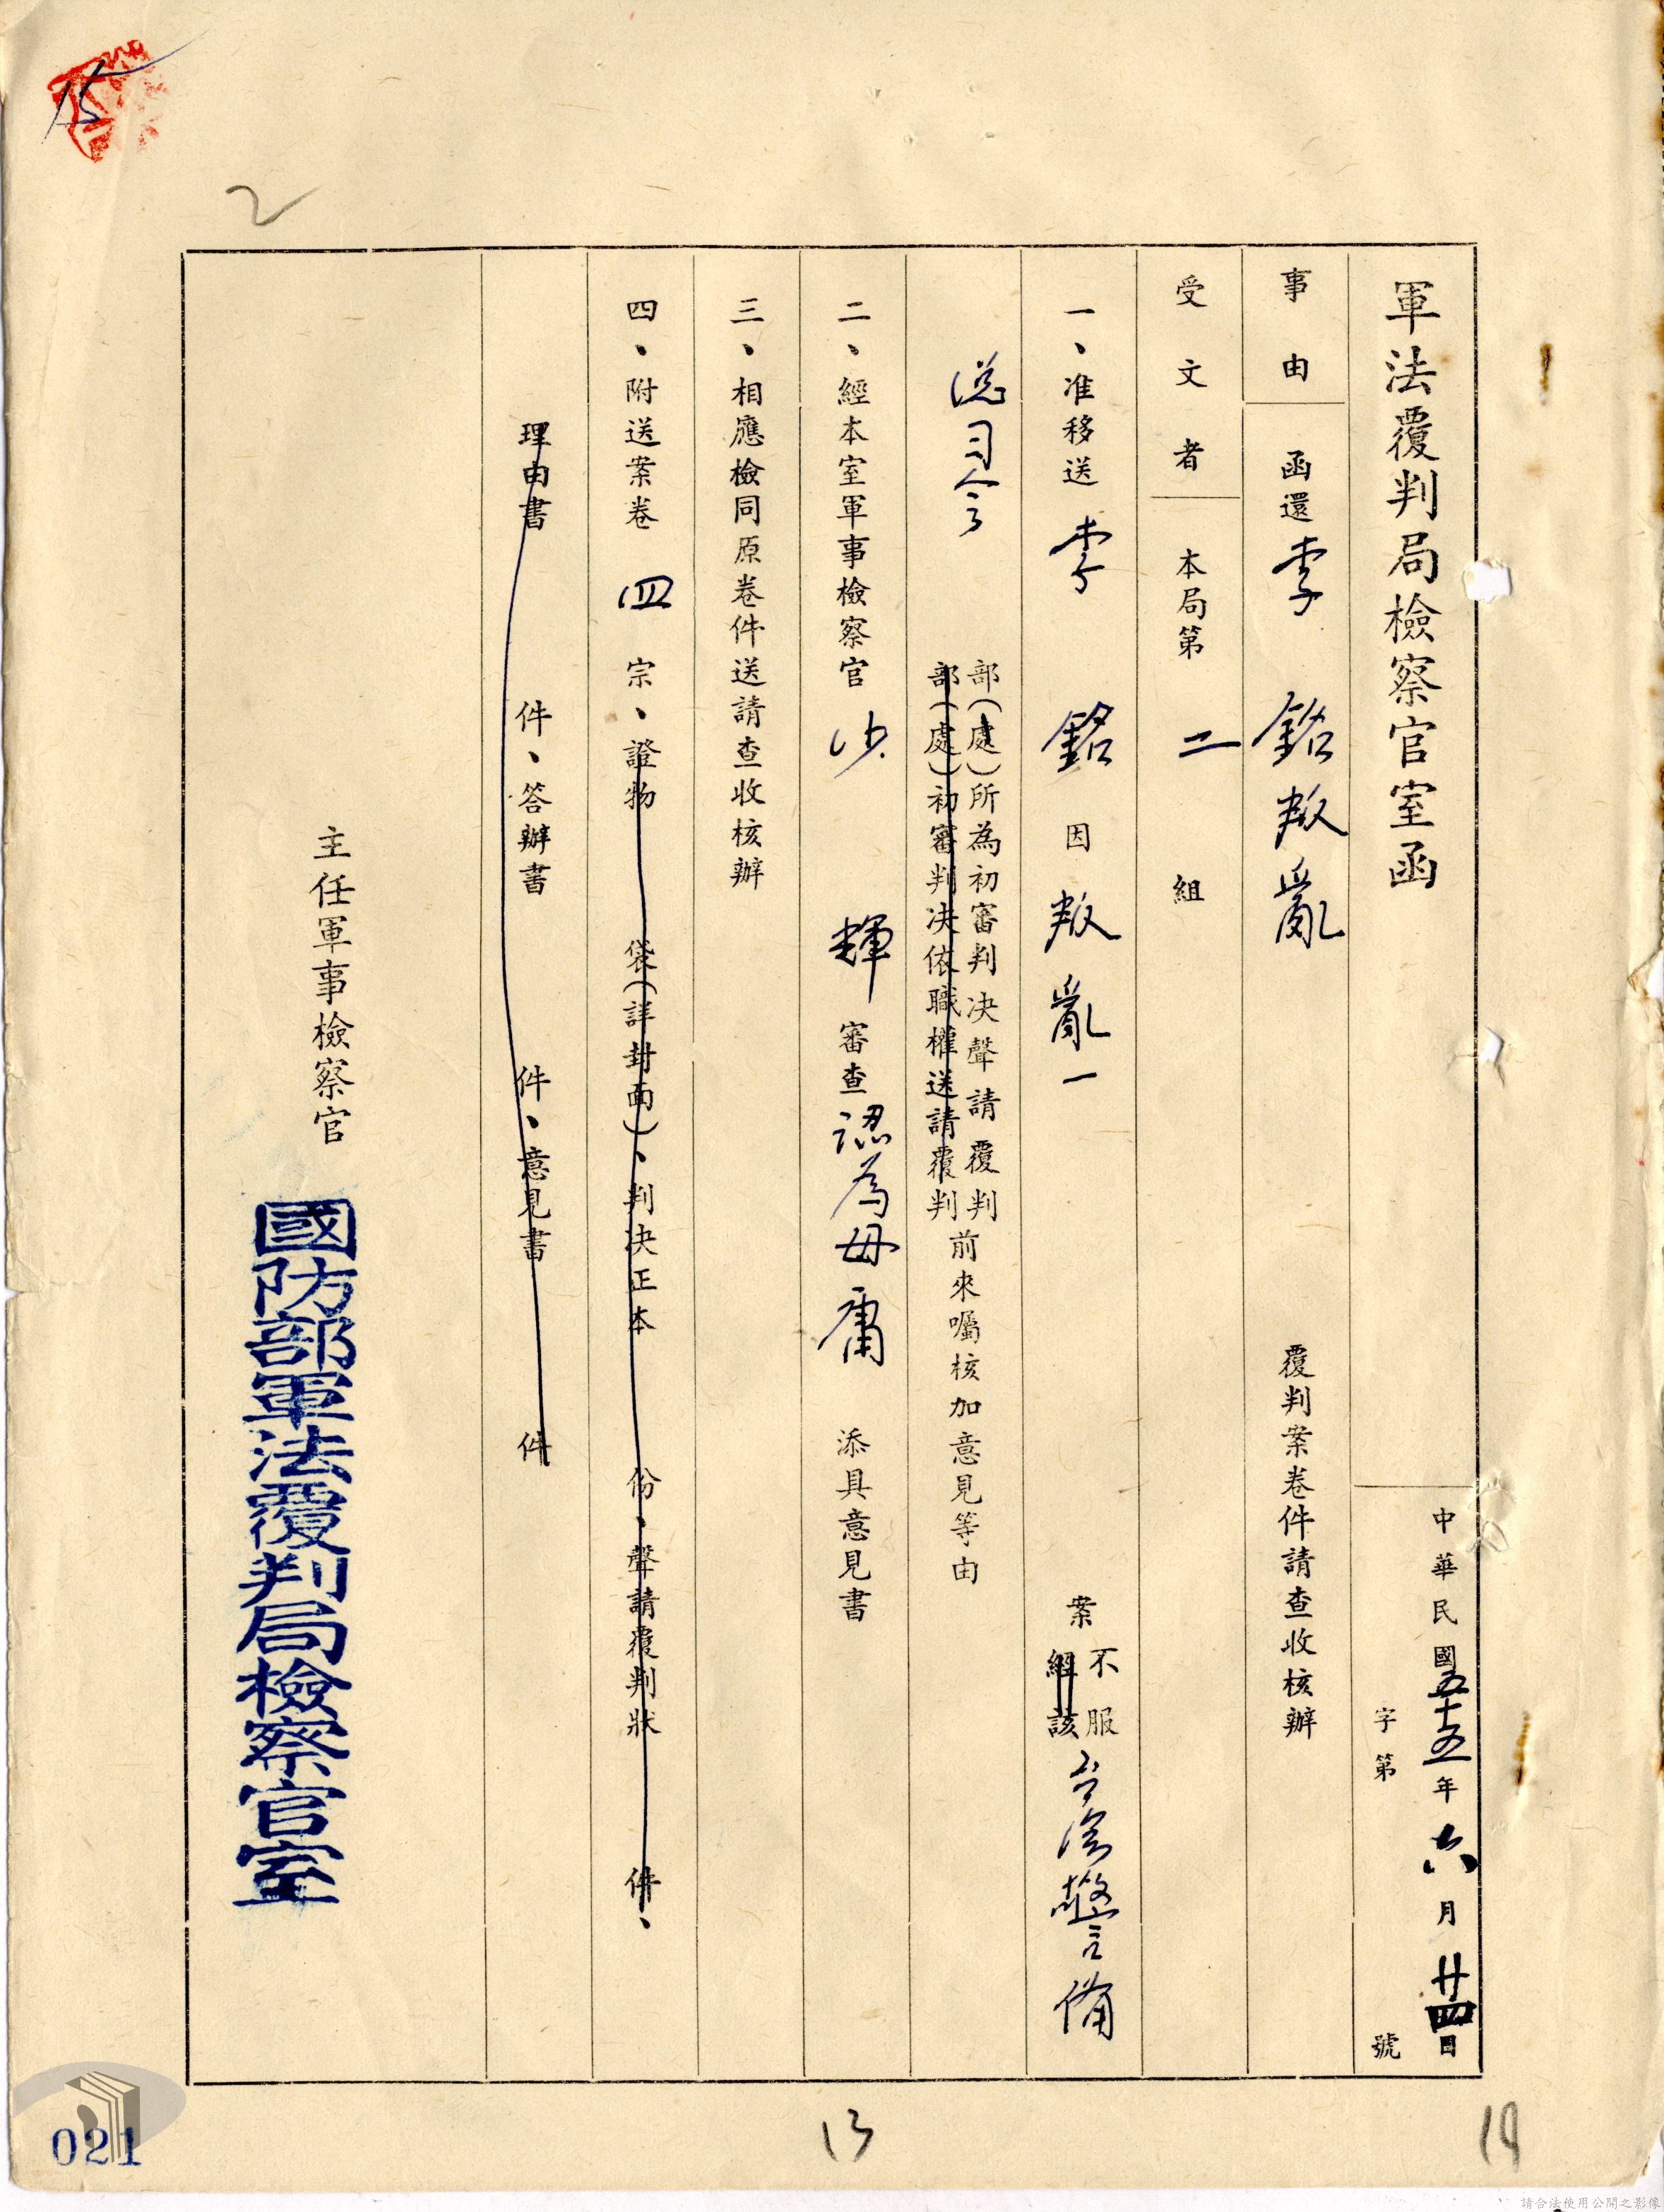 軍法覆判局檢察官室函
中華民國五十五年六月廿四日
字第　號
事由　函還李　銘叛亂　覆判案卷件請查收核辦
受文者　本局第二組
一、准移送李　銘因叛亂一　案不服台灣警備
經該
總司令部(處)所為初審判決聲請覆判前來囑核加意見等由
部(處)初審判決依職權送請覆判
二、經本室軍事檢察官沙　輝審查認為毋庸添具意見書
三、相應檢同原卷件送請查收核辦
四、附送案卷四宗、證物　袋(詳封面)、判決正本　份、聲請覆判狀　件、
理由書　件、答辯書　件、意見書　件
主任軍事檢察官
國防部軍法覆判局檢察官室
15
2
021
13
18
請合法使用公開之影像